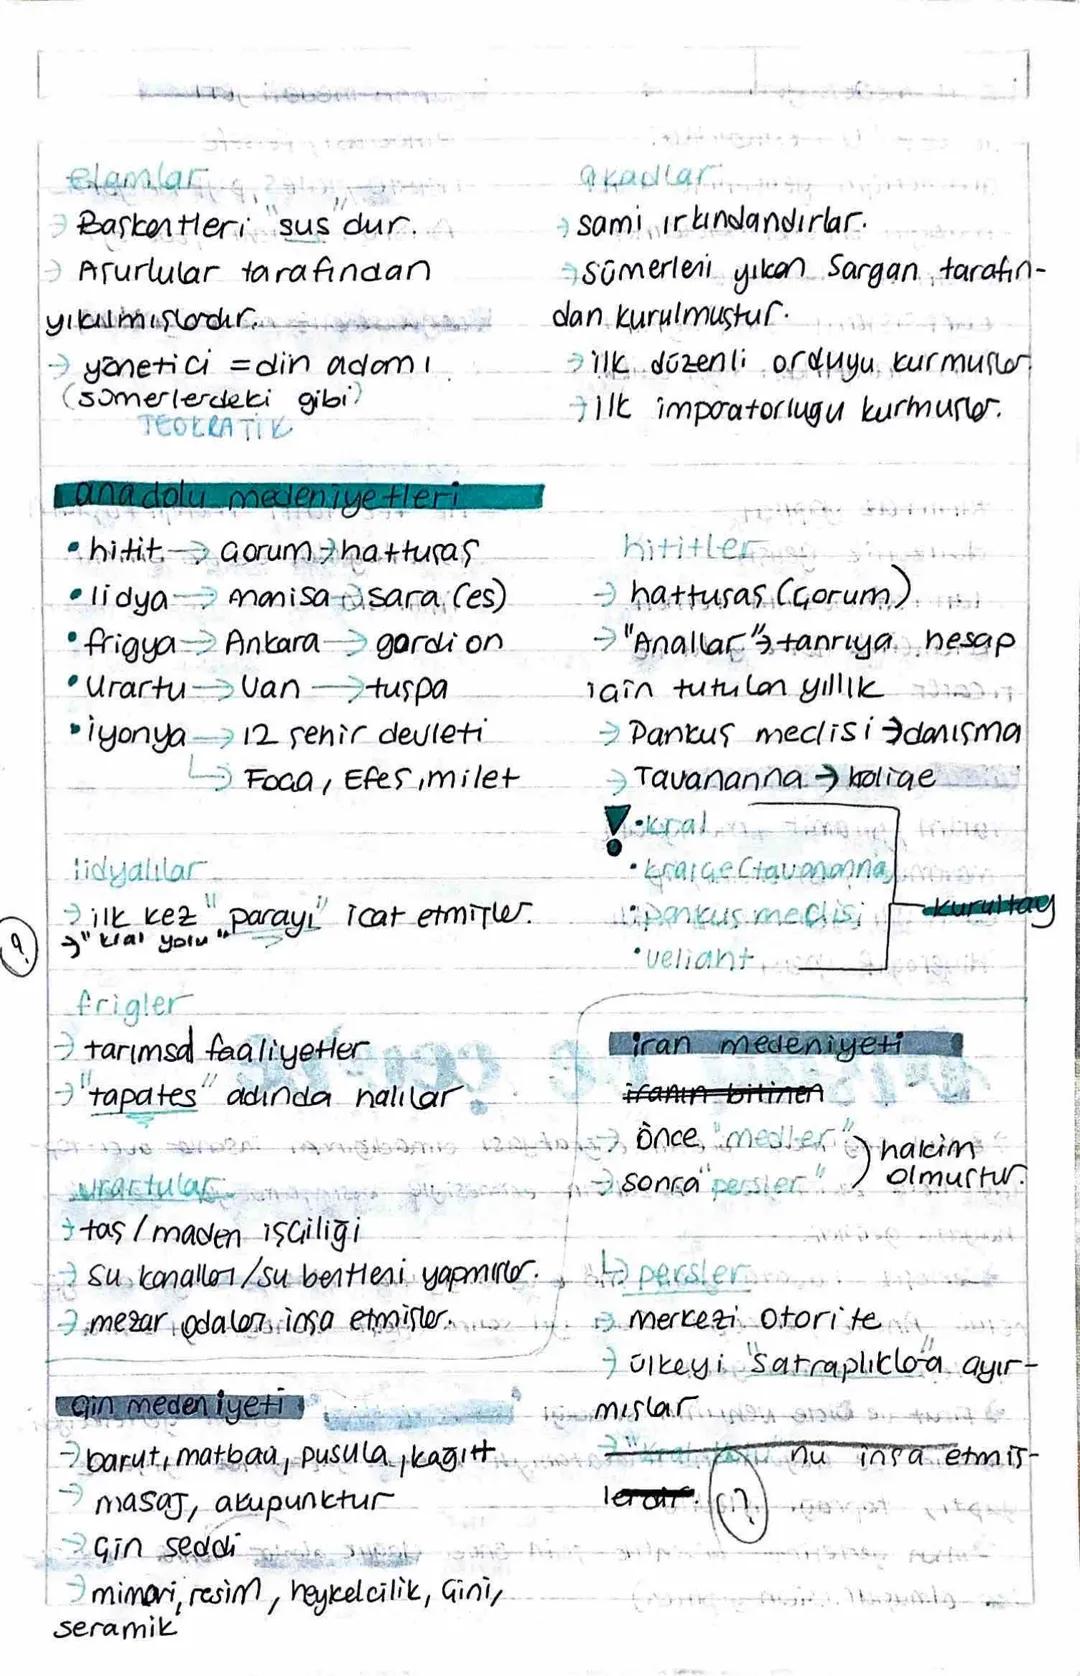 elamlar
→ Başkentleri "sus"dur.
→ Asurlular tarafından
yıkılmışlardır.
→ yönetici = din adamı
(sümerlerdeki gibi)
TEOKRATİK
akadlar
→ sami ırkındandırlar.
→ sümerleri yıkan Sargan tarafın-
dan kurulmuştur.
→ ilk düzenli orduyu kurmuşlar.
→ ilk imparatorlugu kurmuşlar.
anadolu medeniyetleri
• hitit → Çorum → hattuşaş
• lidya → manisa → sara (es)
• frigya → Ankara → gordion
• Urartu → Van → tuşpa
• iyonya → 12 şehir devleti
↳ Foça, Efes, milet
hititler
→ hattuşaş (Çorum)
→ "Anallar" → tanrıya hesap
için tutulan yıllık
→ Pankuş meclisi → danışma
→ Tavananna → kaliçe
! • kral
• kraliçe (tavananna)
• pankuş meclisi
• veliaht
kurultay
lidyalılar
→ ilk kez "parayı" icat etmişler.
→ "kral yolu"
?
frigler
→ tarımsal faaliyetler
→ "tapates" adında halılar
urartular
→ taş / maden işçiliği
→ su kanalları / su bentleri yapmışlar.
→ mezar odaları inşa etmişler.
iran medeniyeti
iranın bitinen
→ önce "medler"
→ sonra "persler"
) hakim
olmuştur.
↳ persler
→ merkezi otorite
→ ülkeyi "satraplıklara" ayır-
mışlar
→ "Kral Yolu" nu inşa etmiş-
lerdir. (?)
çin medeniyeti
→ barut, matbaa, pusula, kağıtt
→ masaj, akupunktur
→ Çin seddi
→ mimari, resim, heykelcilik, Çini,
seramik